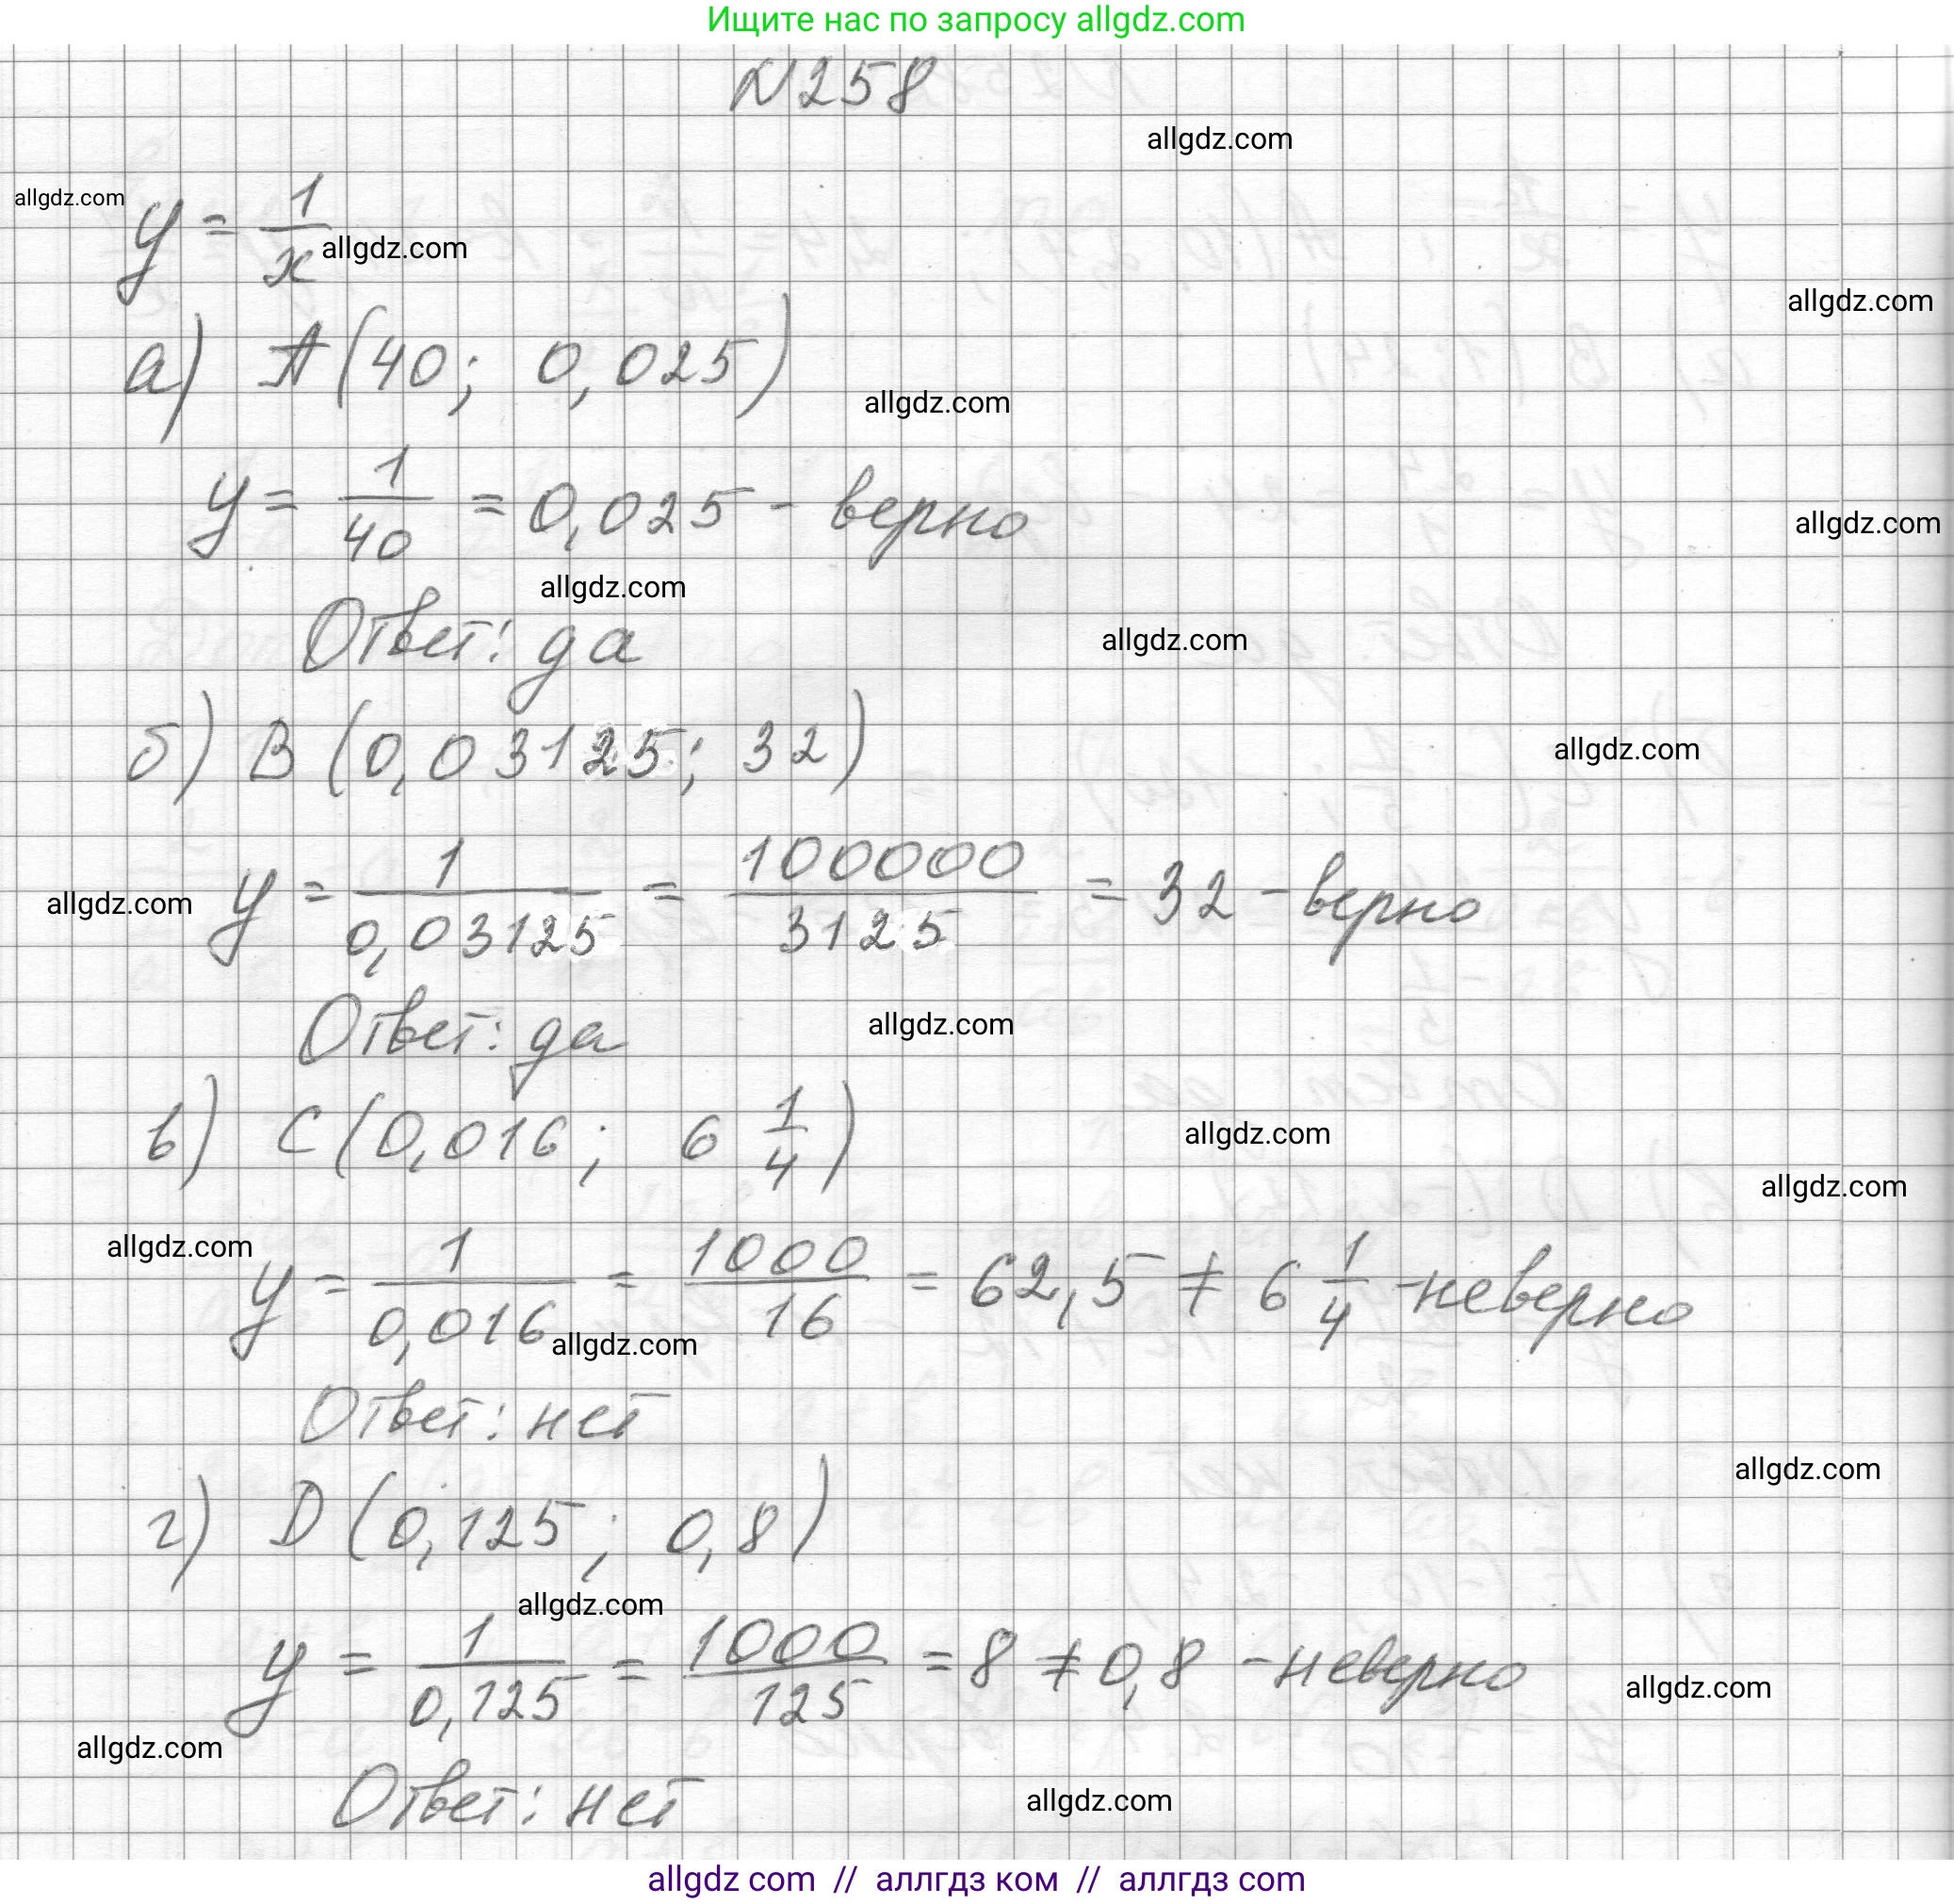 Ищите нас по запросу allgdz.com
N258
allgdz.com
allgdz.com
y = 1/x
allgdz.com
allgdz.com
а) A(40; 0,025)
allgdz.com
y = 1/40 = 0,025 - верно
allgdz.com
allgdz.com
Ответ: да
allgdz.com
б) B(0,03125; 32)
allgdz.com
y = 1/0,03125 = 100000/3125 = 32 - верно
allgdz.com
Ответ: да
allgdz.com
в) C(0,016; 6 1/4)
allgdz.com
allgdz.com
allgdz.com
y = 1/0,016 = 1000/16 = 62,5 ≠ 6 1/4 - неверно
allgdz.com
Ответ: нет
allgdz.com
г) D(0,125; 0,8)
allgdz.com
y = 1/0,125 = 1000/125 = 8 ≠ 0,8 - неверно
allgdz.com
allgdz.com
Ответ: нет
allgdz.com
allgdz com // аллгдз ком // аллгдз com